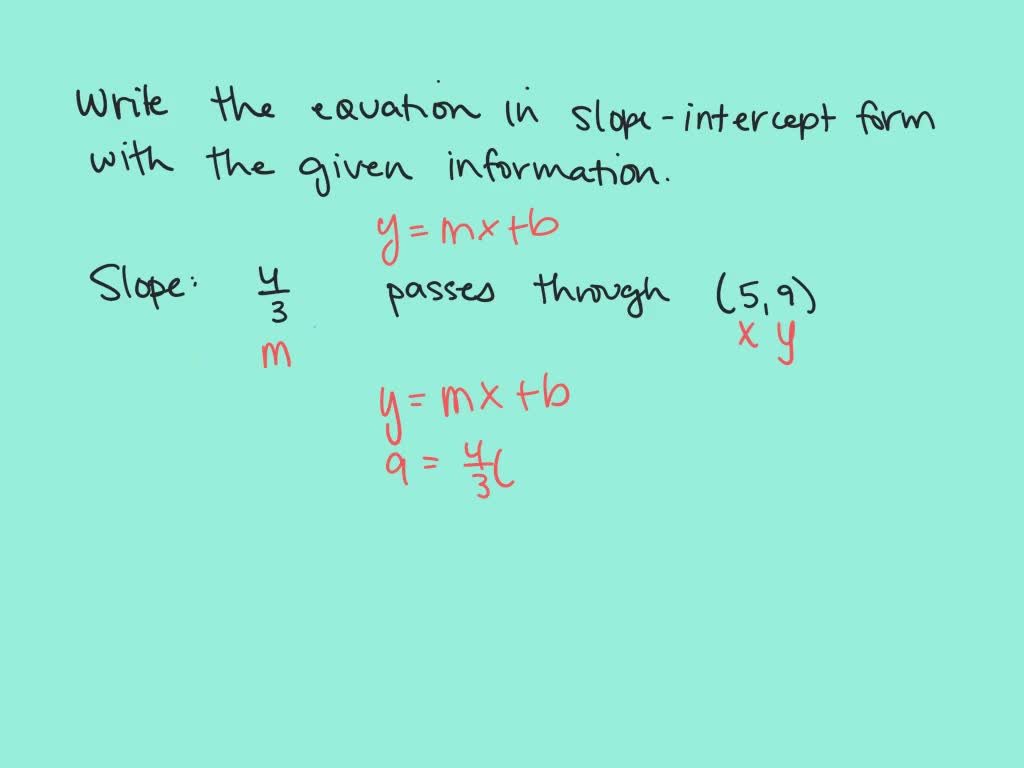 Write the equation in slope-intercept form
with the given information.
y = mx + b
Slope: 4/3 passes through (5, 9)
m x y
y = mx + b
9 = 4/3 (